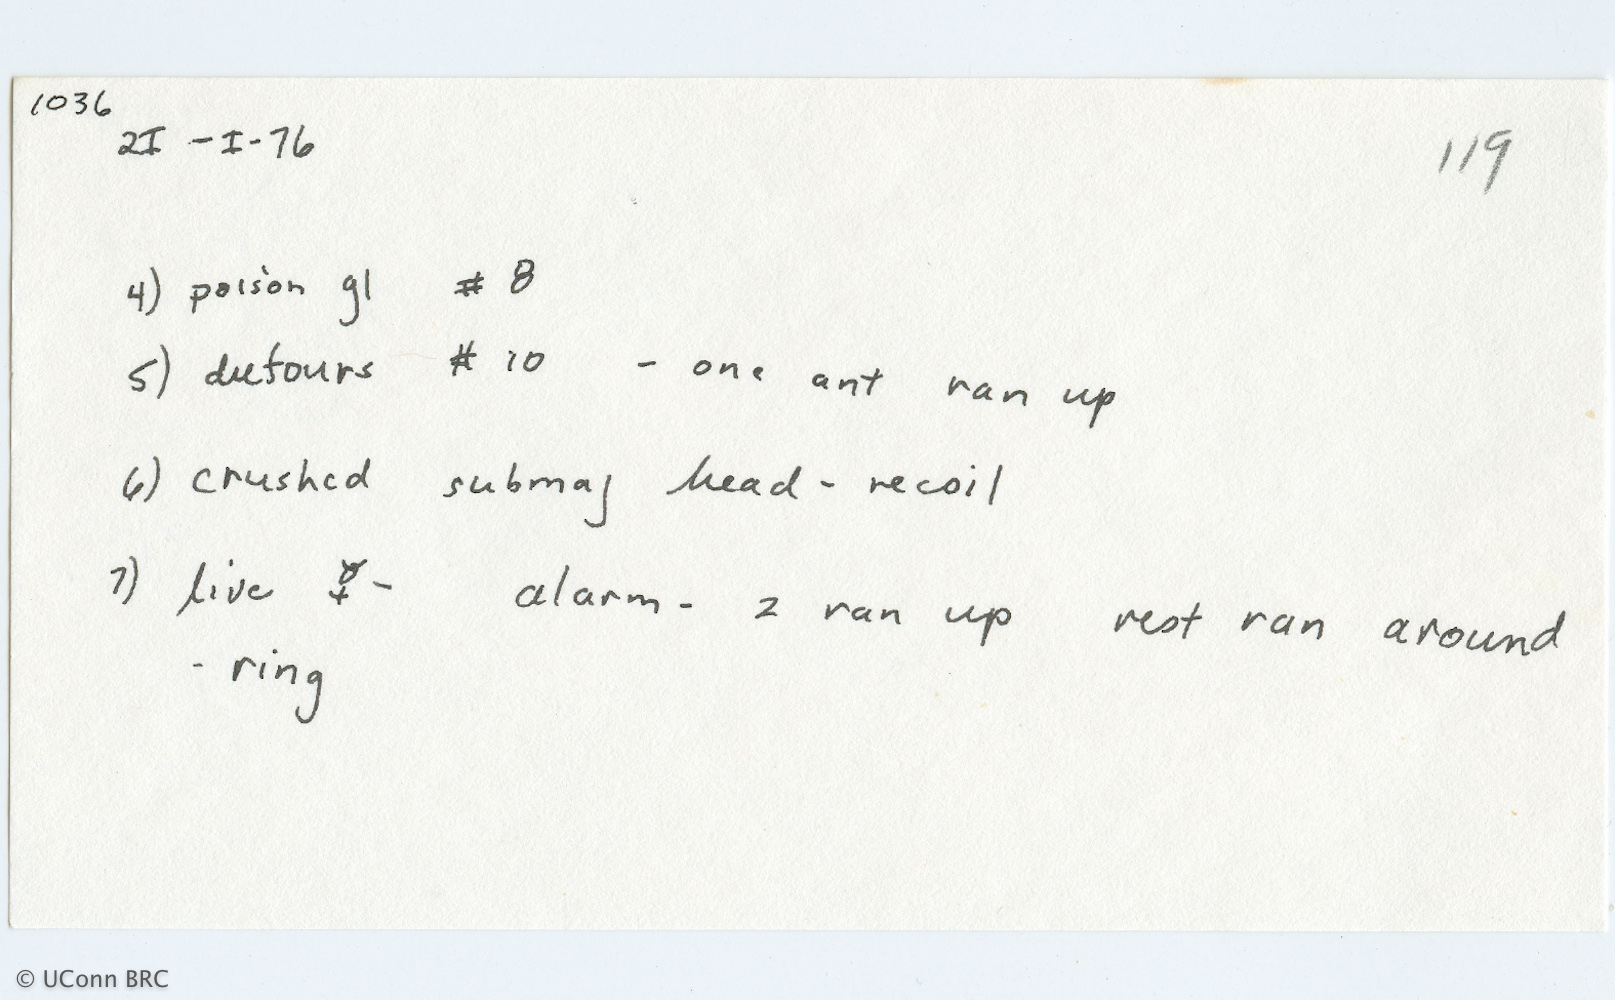 1036
2I - I - 76
119
4) poison gl # 8
5) detours # 10 - one ant ran up
6) crushed submaj head - recoil
7) live ☿ - alarm - 2 ran up rest ran around
- ring
© UConn BRC